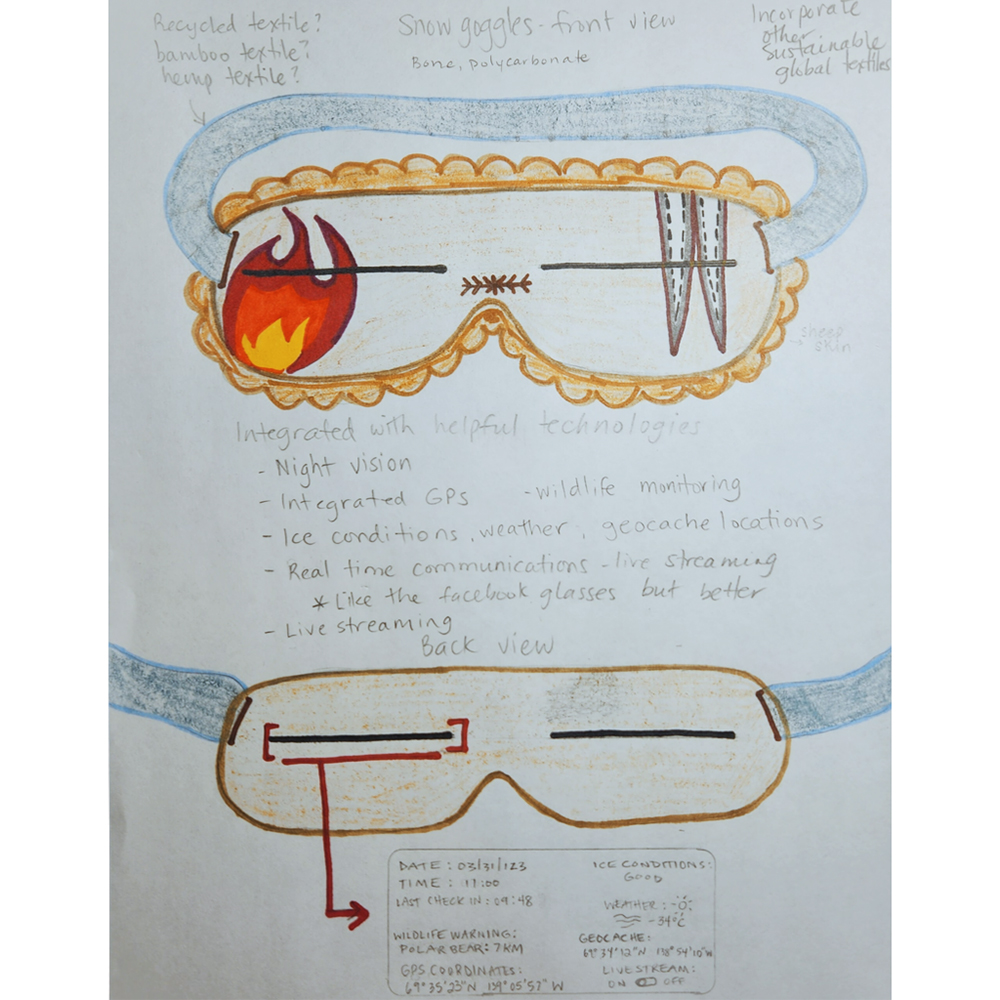 Recycled textile?
bamboo textile?
hemp textile?
Snow goggles - front view
Bone, polycarbonate
Incorporate
other
sustainable
global textiles
sheep
skin
Integrated with helpful technologies
- Night vision
- Integrated GPS - wildlife monitoring
- Ice conditions, weather, geocache locations
- Real time communications - live streaming
* Like the facebook glasses but better
- Live streaming
Back view
DATE: 03/31/123
TIME: 11:00
LAST CHECK IN: 09:48
WILDLIFE WARNING:
POLAR BEAR: 7KM
GPS COORDINATES:
69° 35' 23"N 139° 05' 57" W
ICE CONDITIONS:
GOOD
WEATHER:
-34°C
GEOCACHE:
69° 34' 12"N 138° 54' 10"W
LIVESTREAM:
ON OFF